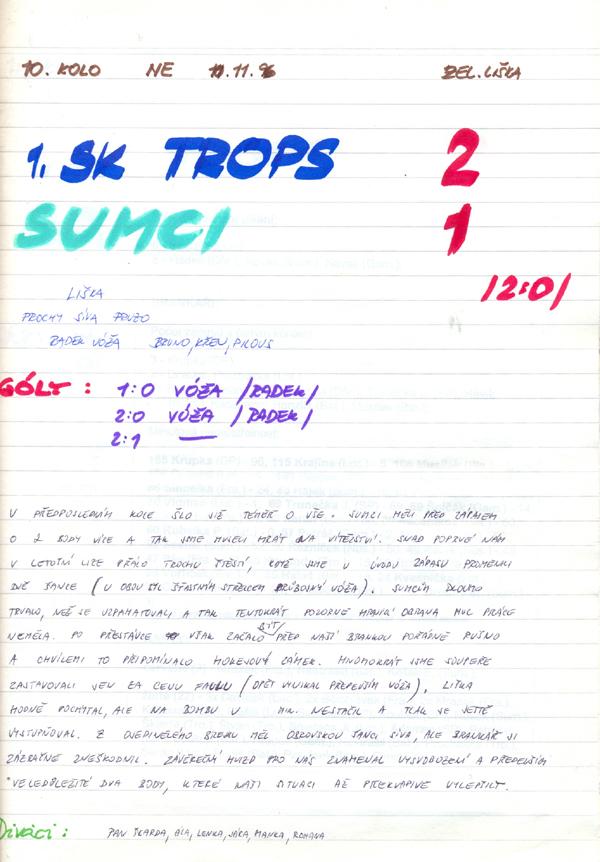 10. KOLO NE 11.11.96 ZEL. LIŠKA
1. SK TROPS 2
SUMCI 1
/2:0/
LIŠKA
PROCHY SÍVA
RADEK VÓŽA BRUNO, KŘEN, PILOUS
GÓLY : 1:0 VÓŽA /RADEK/
2:0 VÓŽA /RADEK/
2:1 —
V PŘEDPOSLEDNÍM KOLE ŠLO JIŽ TÉMĚŘ O VŠE. SUMCI MĚLI PŘED ZÁPASEM
O 2 BODY VÍCE A TAK JSME MUSELI HRÁT NA VÍTĚZSTVÍ. SNAD POPRVÉ NÁM
V LETOŠNÍ LIZE PŘÁLO TROCHU ŠTĚSTÍ, KDYŽ JSME V ÚVODU ZÁPASU PROMĚNILI
DVĚ ŠANCE (U OBOU BYL ŠŤASTNÝM STŘELCEM PRŮBOJNÝ VÓŽA). SUMCŮM DLOUHO
TRVALO, NEŽ SE VZPAMATOVALI A TAK TENTOKRÁT POZORNĚ HRAJÍCÍ OBRANA MOC PRÁCE
NEMĚLA. PO PŘESTÁVCE VŠAK ZAČALO BÝT PŘED NAŠÍ BRANKOU POŘÁDNĚ RUŠNO
A CHVÍLEMI TO PŘIPOMÍNALO HOKEJOVÝ ZÁMEK. MNOHOKRÁT JSME SOUPEŘE
ZASTAVOVALI JEN ZA CENU FAULU (OPĚT VYNIKAL PŘEDEVŠÍM VÓŽA). LIŠKA
HODNĚ POCHYTAL, ALE NA BOMBU V MIN. NESTAČIL A TLAK SE JEŠTĚ
VYSTUPŇOVAL. Z OJEDINĚLÉHO BREKU MĚL OBROVSKOU ŠANCI SÍVA, ALE BRANKÁŘ JI
ZÁZRAČNĚ ZNEŠKODNIL. ZÁVĚREČNÝ HVIZD PRO NÁS ZNAMENAL VYSVOBOZENÍ A PŘEDEVŠÍM
VELEDŮLEŽITÉ DVA BODY, KTERÉ NAŠI SITUACI AŽ PŘEKVAPIVĚ VYLEPŠILY.
Diváci : PAN ŠKARDA, ALA, LENKA, JÁRA, HANKA, ROMANA